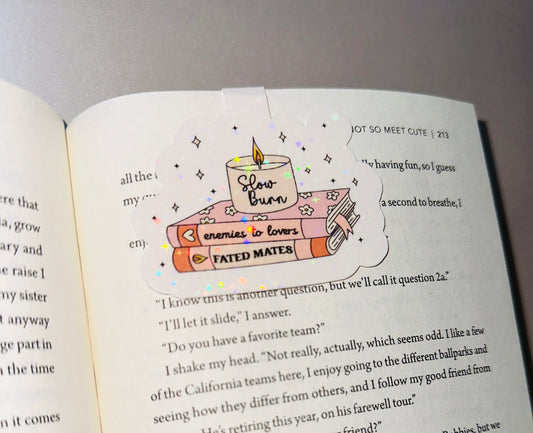 ere that
a, grow
ary and
e raise I
my sister
t anyway
ge part in
the time
n it comes
OT SO MEET CUTE | 213
all the
ly having fun, so I guess
my
a second to breathe, I
enj
Slow
Burn
enemies to lovers
FATED MATES
“I know this is another question, but we’ll call it question 2a.”
“I’ll let it slide,” I answer.
“Do you have a favorite team?”
I shake my head. “Not really, actually, which seems odd. I like a few
of the California teams here, I enjoy going to the different ballparks and
seeing how they differ from others, and I follow my good friend from
He’s retiring this year, on his farewell tour.”
friend?”
but we